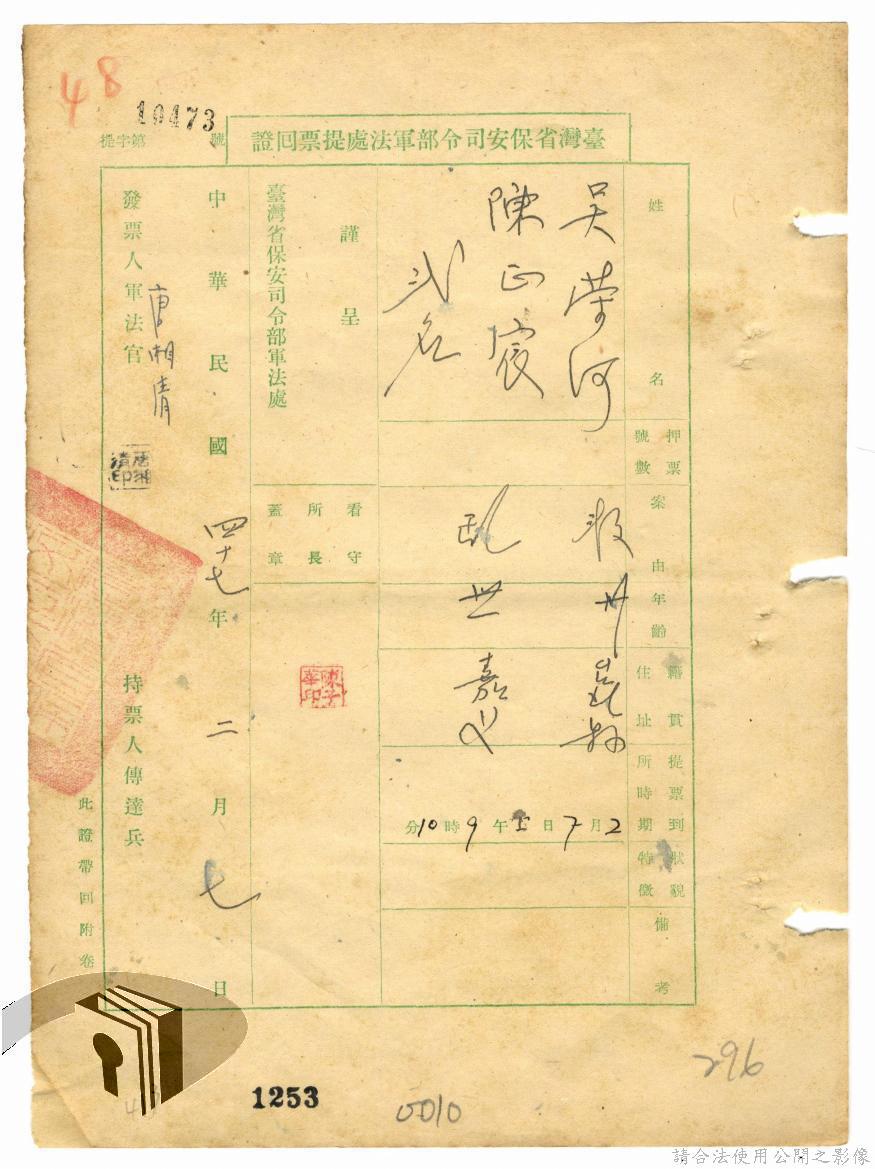 48
10473
提字第 號
臺灣省保安司令部軍法處提票回證
姓名
吴荣河
陳正宸
弍名
押票號數
案由
叛
亂
年齡
卅
廿
籍貫住址
嘉義
提票到所時期
2月7日上午9時10分
狀貌特徵
備考
謹呈
臺灣省保安司令部軍法處
看守所長蓋章
中華民國四十七年二月七日
發票人軍法官 唐湘清
唐湘清印
持票人傳達兵
此證帶回附卷
1253
0010
296
請合法使用公開之影像